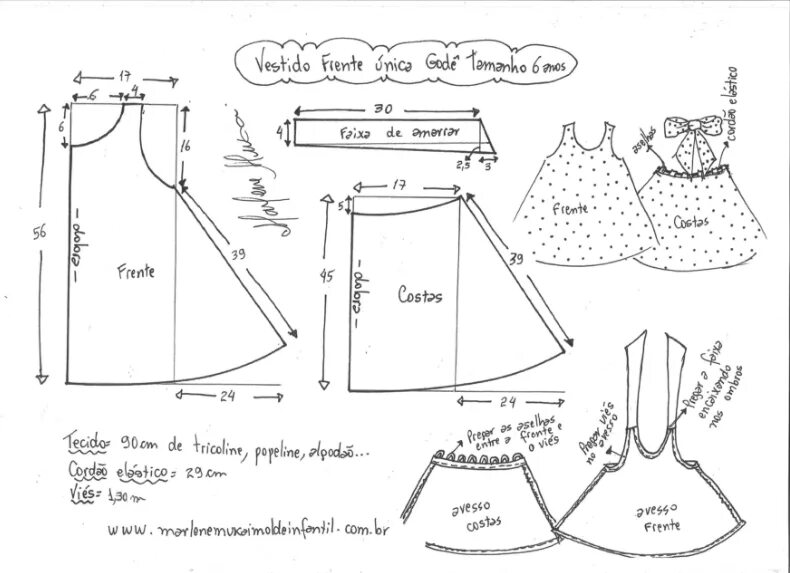 Vestido Frente única Godê Tamanho 6 anos
17
6
4
6
16
56
- dobra -
Frente
39
24
30
4
Faixa de amarrar
2,5
3
17
5
45
- dobra -
Costas
39
24
Marlene Mukai
Frente
aselhas
cordão elástico
Costas
Tecido= 90cm de tricoline, popeline, algodão...
Cordão elástico = 29cm
Viés= 1,30m
www.marlenemukaimoldeinfantil.com.br
Pregar as aselhas
entre a frente e
o viés
avesso
costas
Pregar viés
no avesso
Pregar a faixa
encaixando
nos ombros
avesso
Frente